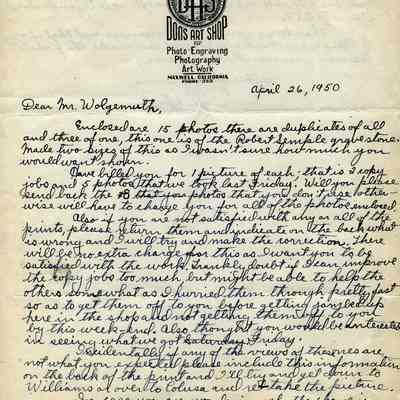 DAS
DONS ART SHOP
Photo-Engraving
Photography
Art Work
MAXWELL, CALIFORNIA
April 26, 1950
Dear Mr. Wolgemuth,
Enclosed are 15 photos there are duplicates of all
and three of one, this one is of the Robert Semple gravestone.
Made two sizes of this as I wasn't sure how much you
would want shown.
Have billed you for 1 picture of each, that is 2 copy
jobs and 5 photos that we took last Friday. Will you please
send back the photos that you don't use other-
wise will have to charge you for all of the photos enclosed
Also if you are not satisfied with any or all of the
prints, please return them and indicate on the back what
is wrong and I will try and make the correction. There
will be no extra charge for this as I want you to be
satisfied with the work. Frankly, doubt if I can improve
the copy jobs too much, but might be able to help the
others somewhat as I hurried them through pretty fast
so as to get them off to you before getting jambed up
here in the shop and not getting them off to you
by this week-end. Also, thought you would be interested
in seeing what we got Friday.
Incidentally if any of the views of these are
not what you expected please include this information
on the back of the print and I'll try and get down to
Williams or over to Colusa and retake the picture.